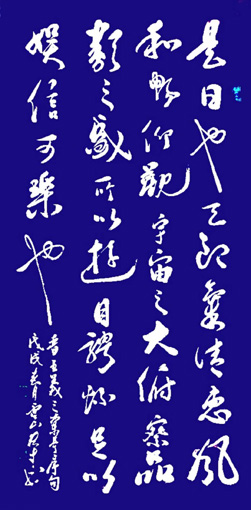 是日也天朗氣清惠風
和暢仰觀宇宙之大俯察品
類之盛所以遊目騁懷足以
娛信可樂也
晋王羲之蘭亭序句
戊戌春月